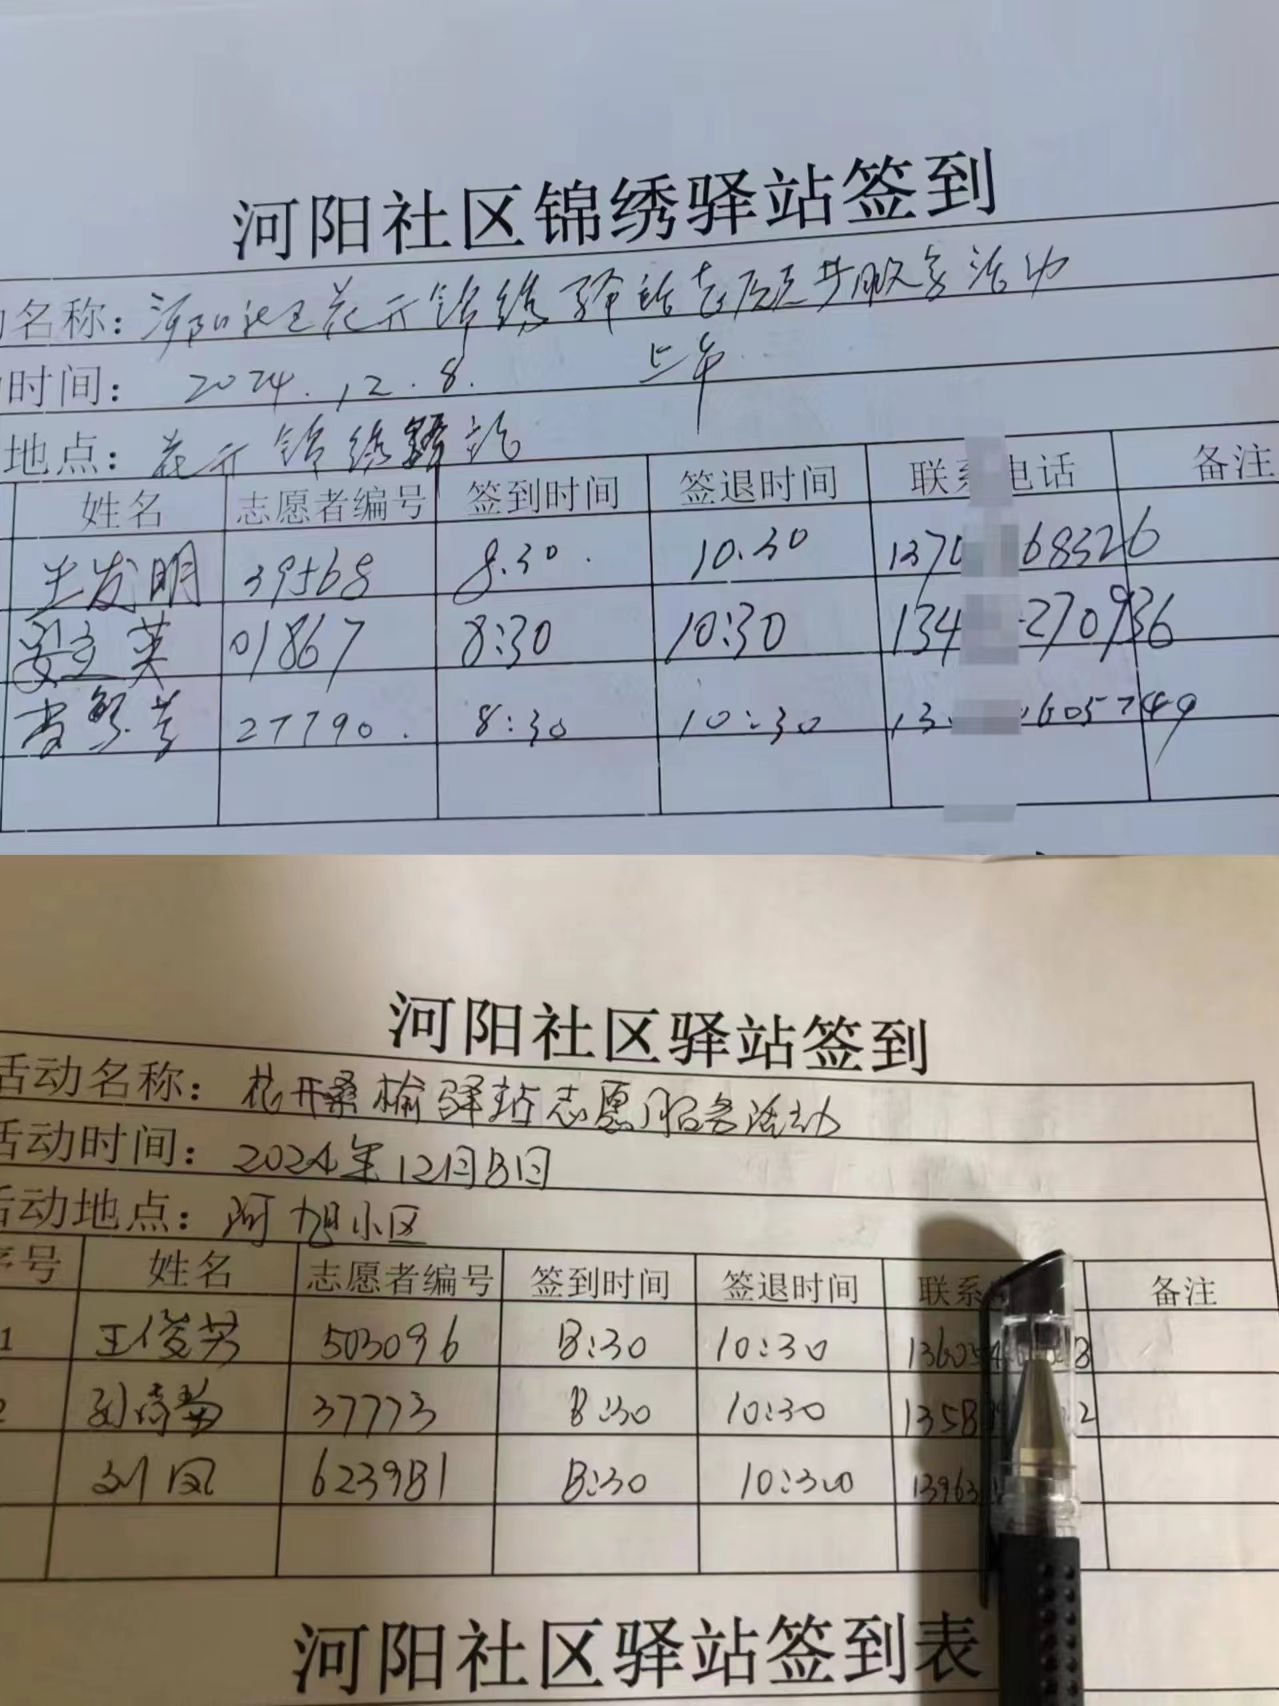 河阳社区锦绣驿站签到
名称：河阳社区花开锦绣驿站志愿者服务活动
时间： 2024.12.8. 上午
地点：花开锦绣驿站
姓名 志愿者编号 签到时间 签退时间 联系电话 备注
王发明 39568 8:30 10:30 1370 68326
英 01867 8:30 10:30 134 270936
27790 8:30 10:30 13 605749
河阳社区驿站签到
活动名称：花开桑榆驿站志愿服务活动
活动时间：2024年12月8日
活动地点：阿旭小区
序号 姓名 志愿者编号 签到时间 签退时间 联系 备注
1 王俊芳 503096 8:30 10:30 13605 8
2 刘 37773 8:30 10:30 1358 2
刘凤 623981 8:30 10:30 13963
河阳社区驿站签到表